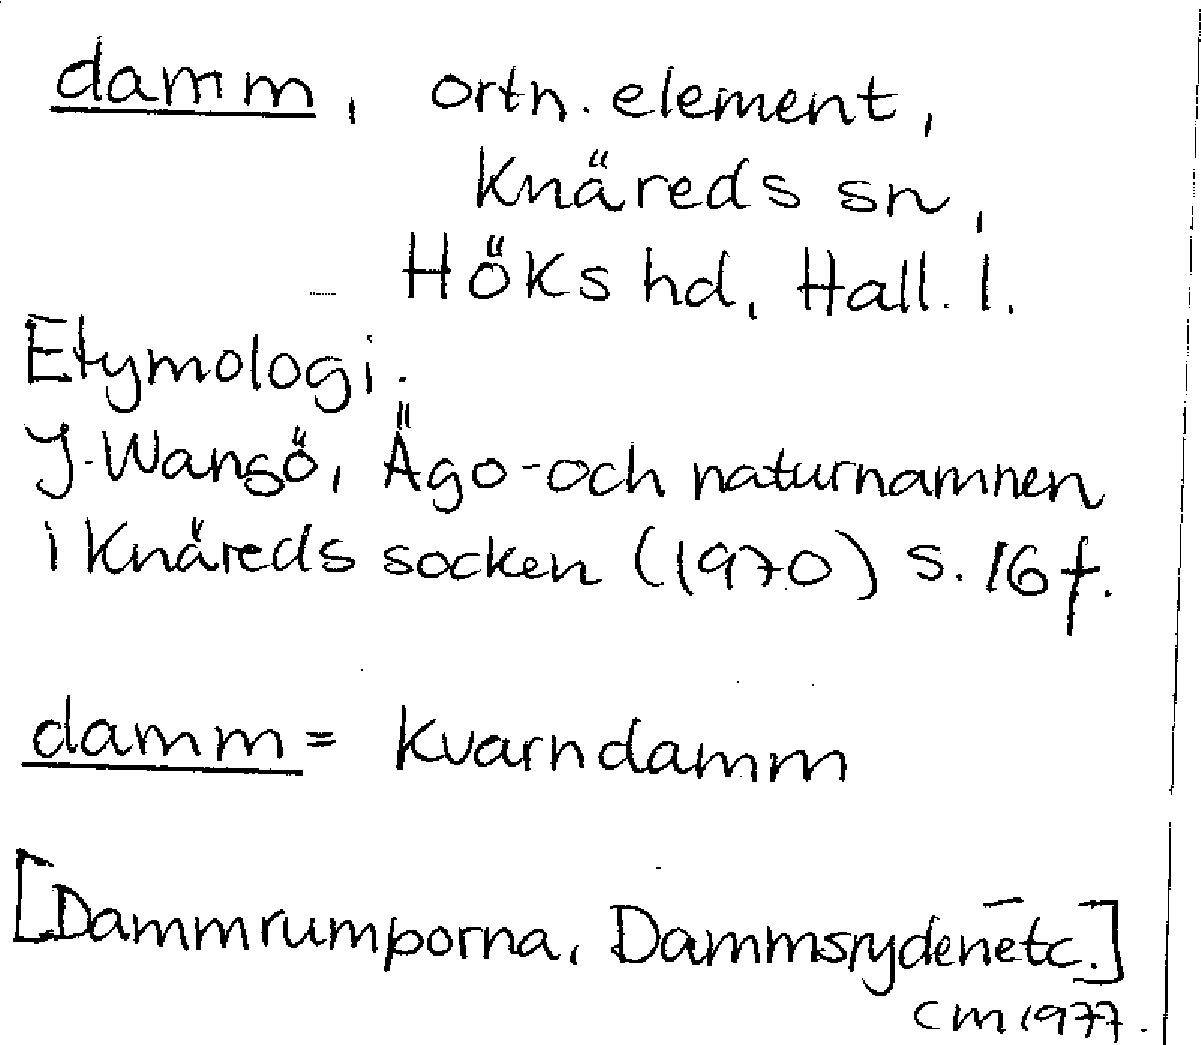 damm, ortn. element,
Knäreds sn,
Höks hd, Hall. l.
Etymologi.
J. Wangö, Ägo- och naturnamnen
i Knäreds socken (1970) s. 16 f.
damm = Kvarndamm
[Dammrumporna, Dammsryden etc.]
CM 1977.